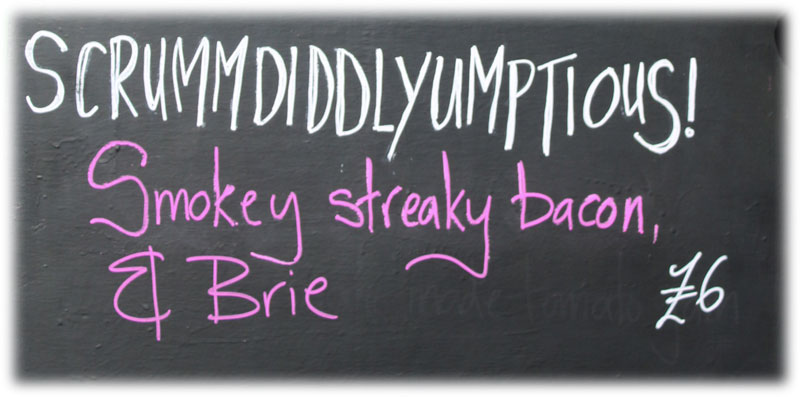 SCRUMMDIDDLYUMPTIOUS!
Smokey streaky bacon,
& Brie £6